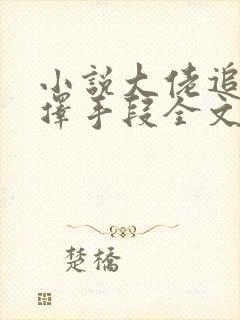 小說大佬追
擇手段全文
楚橋